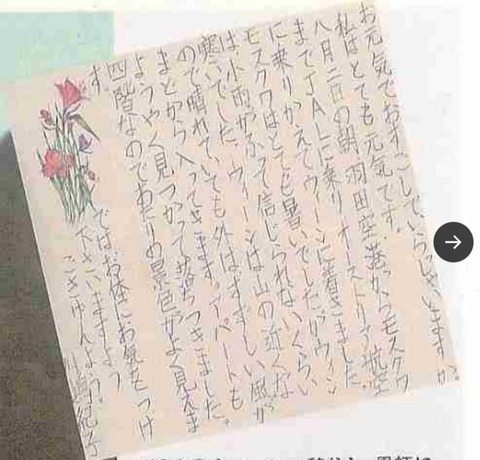 お元気でおすごしていらっしゃいますか
私はとても元気です。
八月二日の朝、羽田空港からモスクワ
までJALに乗り、オーストリア航空
に乗りかえてウィーンに着きました。
モスクワはとても暑いでしたがウィーン
は小雨がふって信じられないくらい
寒いでした。ウィーンは山の近くな
ので晴れていても外はすずしい風が
まどから入ってきます。アパートも
ようやく見つかって落ちつきました。
四階なのであたりの景色がよく見えま
す。
ではお体にお気をつけ
下さいますよう
ごきげんよう
川嶋紀子